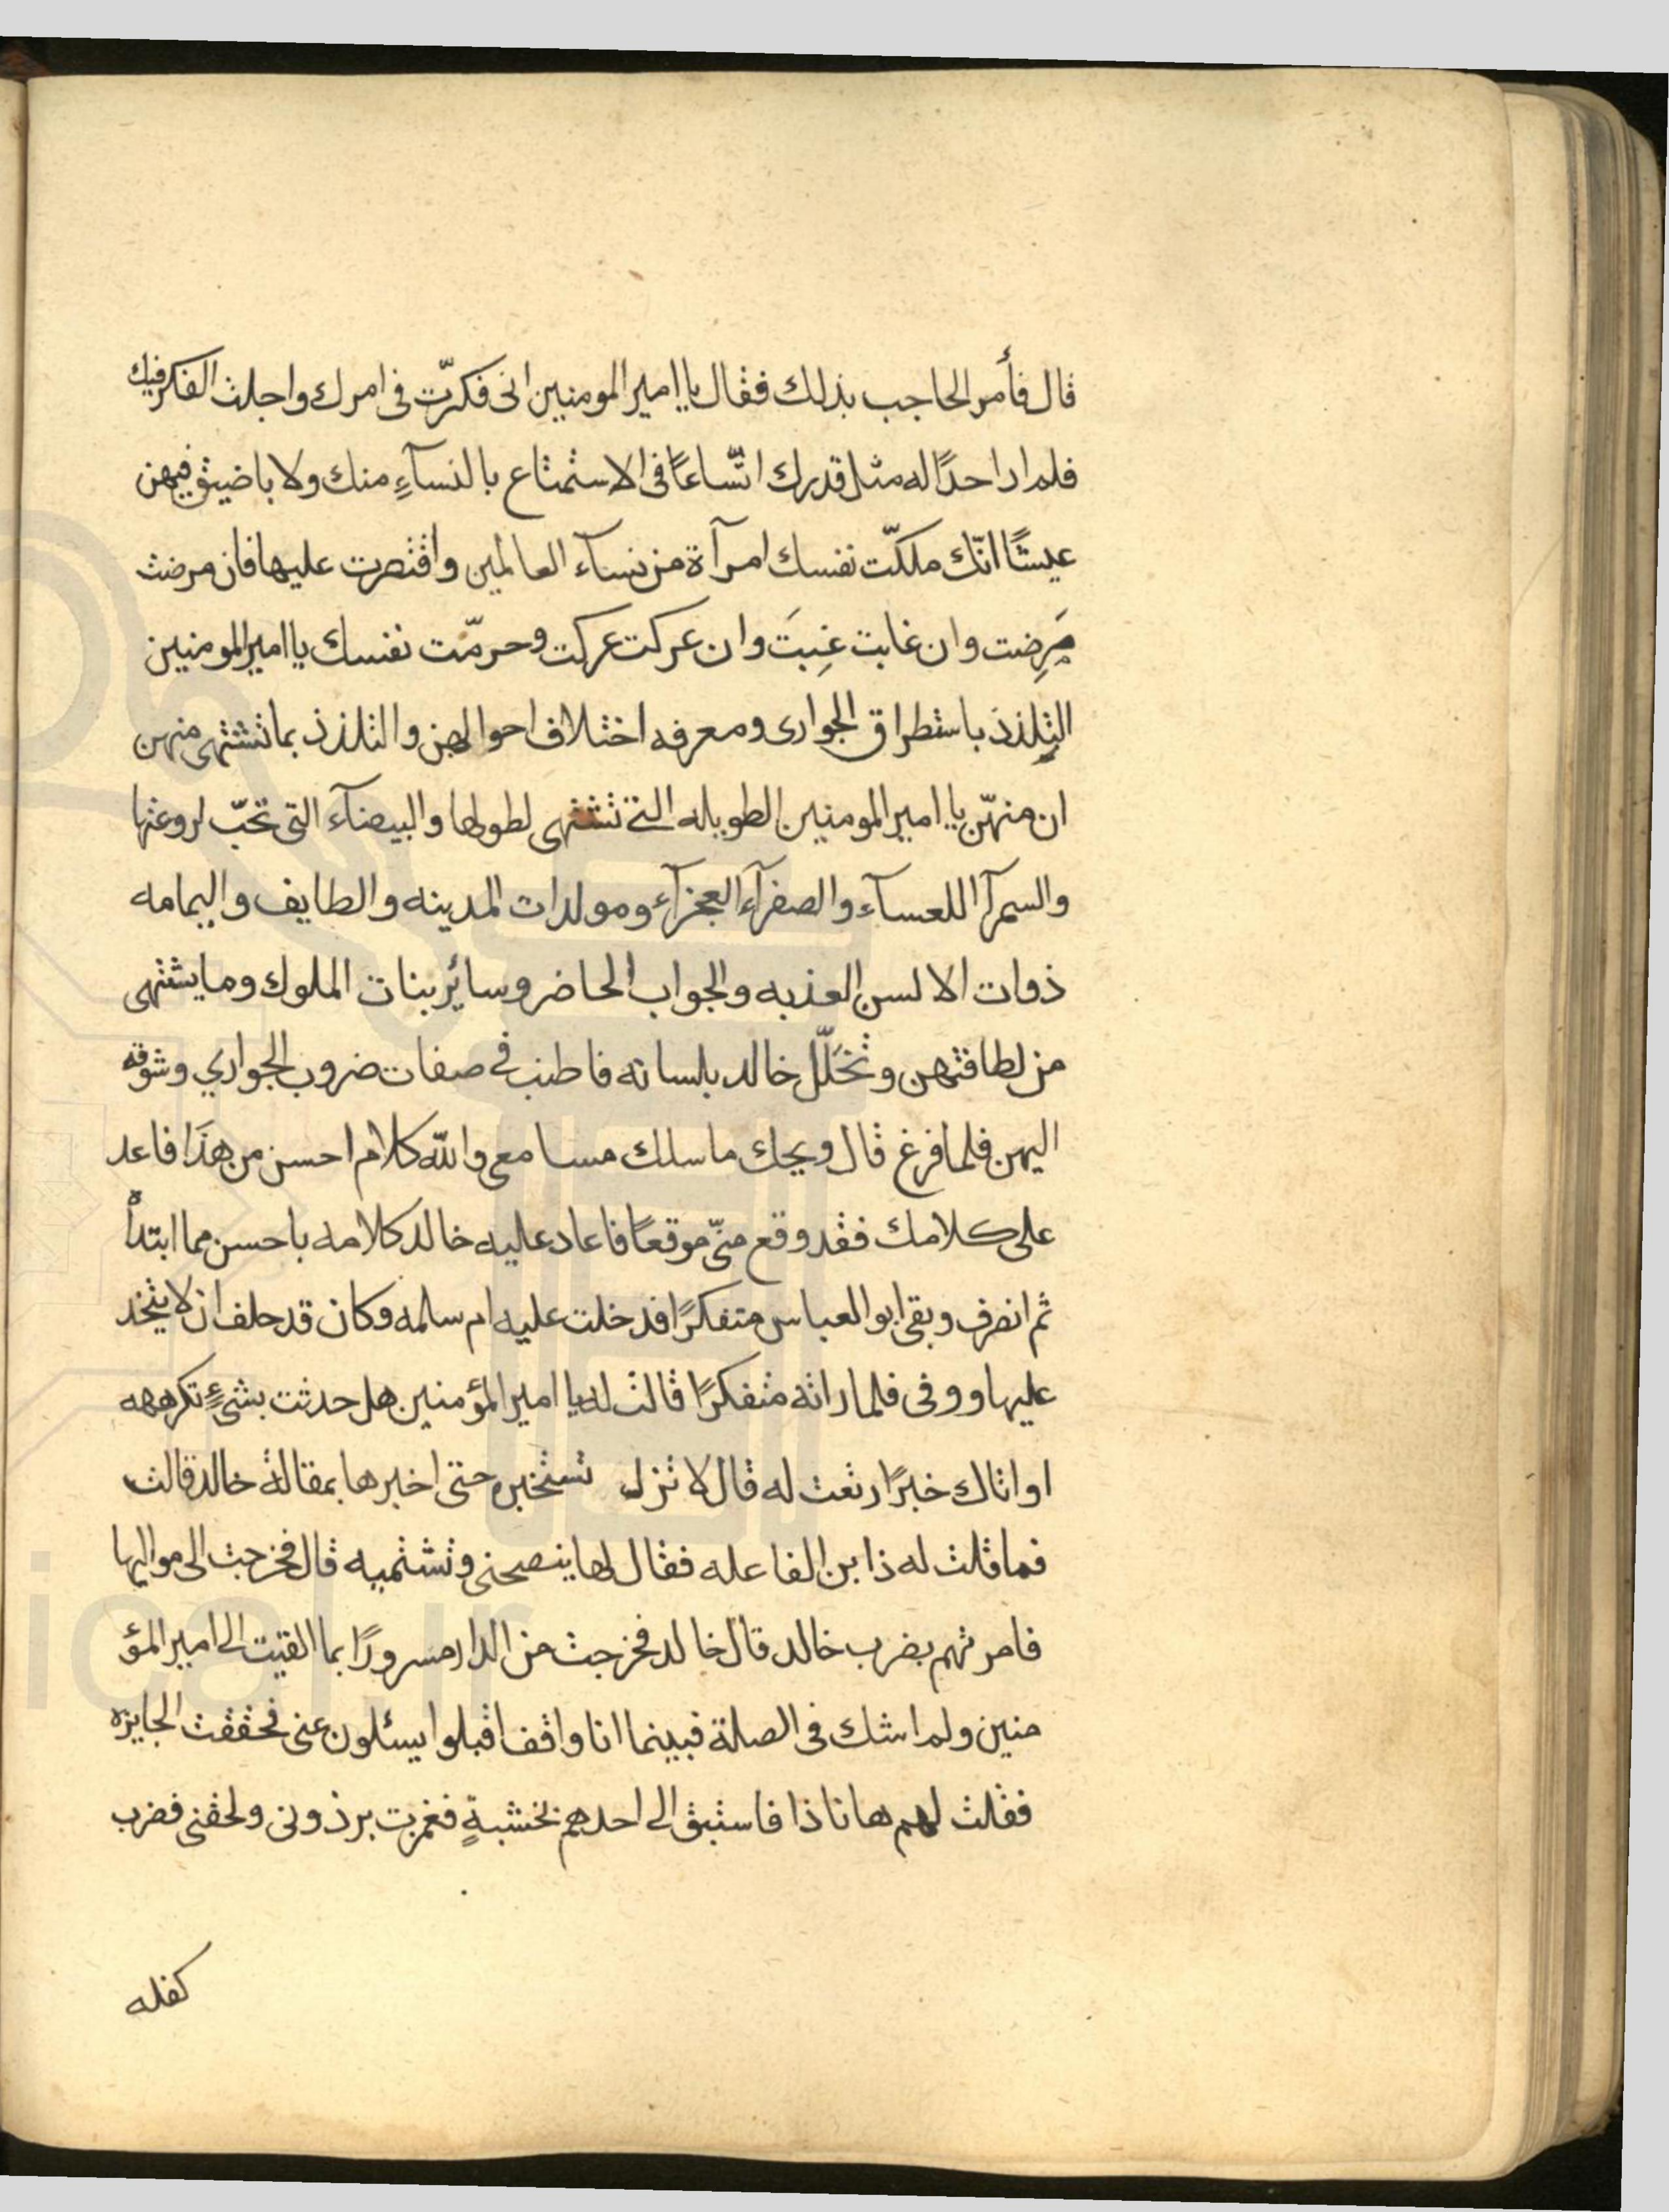 قال فأمر الحاجب بذلك فقال يا امير المومنين انى فكرّت فى امرك واجلت الفكر فيك
فلم ار احدًا له مثل قدرك اتّساعًا فى الاستمتاع بالنسآءِ منك ولا باضيق فيهن
عيشًا انّك ملكّت نفسك امرآة من نسآء العالمين واقتصرت عليها فان مرضت
مَرِضت وان غابت غِبتَ وان عركت عركت وحرمّت نفسك يا امير المومنين
التلذذ باستطراق الجوارى ومعرفه اختلاف احوالهن والتلذذ بما تشتهى منهن
ان منهّن يا امير المومنين الطويله التى تشتهى لطولها والبيضآء التى تحبّ لروعتها
والسمرآ اللعسآء والصفرآء العجزآء ومولدات المدينه والطايف واليمامه
ذوات الالسن العذبه والجواب الحاضر وسائر بنات الملوك وما يشتهى
من لطافتهن وتخلّل خالد بلسانه فاطنب فى صفات ضروب الجواري وشوقه
اليهن فلما فرغ قال ويحك ما سلك مسامعى والله كلام احسن من هذَا فاعد
على كلامك فقد وقع منّى موقعًا فاعاد عليه خالد كلامه باحسن مما ابتدأه
ثم انصرف وبقى ابو العباس متفكرًا فدخلت عليه ام سلمه وكان قد حلف ان لا يتخذ
عليها ووفى فلما راته متفكرًا قالت له يا امير المؤمنين هل حدثت بشىءٍ تكرهه
او اتاك خبرًا رتعت له قال لا تزل تستخبره حتى اخبرها بمقالة خالد قالت
فما قلت له ذا بن الفاعله فقال لها ينصحنى وتشتميه قال فخرجت الى مواليها
فامرتهم بضرب خالد قال خالد فخرجت من الدار مسرورًا بما القيت الى امير المؤ
منين ولم اشك فى الصلة فبينما انا واقف اقبلوا يسئلون عنى فحققت الجايزه
فقلت لهم هاناذا فاستبق الى احدهم بخشبةٍ فغمزت برذونى ولحقنى فضرب
كفله